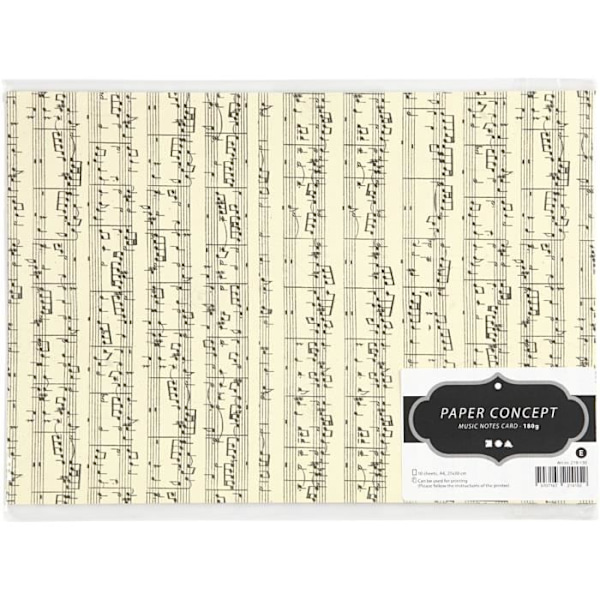 PAPER CONCEPT
MUSIC NOTES CARD - 180g
E
10 sheets, A4, 21x30 cm
Can be used for printing
(Please follow the instructions of the printer)